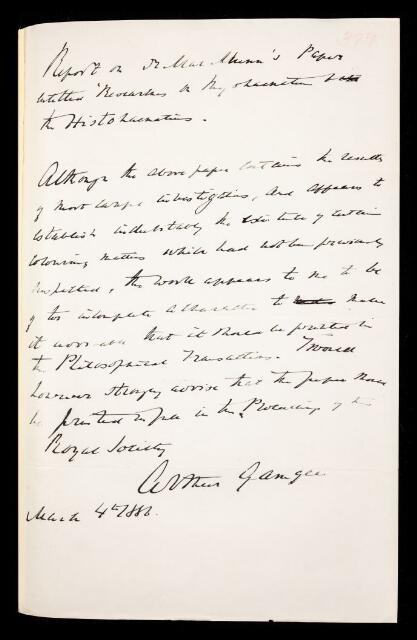 274
Report on Dr Mac Munn's Paper
entitled "Researches on Myohaematin &
the Histohaematins.
Although the above paper contains the results
of most careful investigations, and appears to
establish indubitably the existence of certain
colouring matters which had not been previously
suspected, the work appears to me to be
of too incomplete a character to make
it advisable that it should be printed in
the Philosophical Transactions. I would
however strongly advise that the paper should
be printed in full in the Proceedings of the
Royal Society
Arthur Gamgee
March 4th 1886.